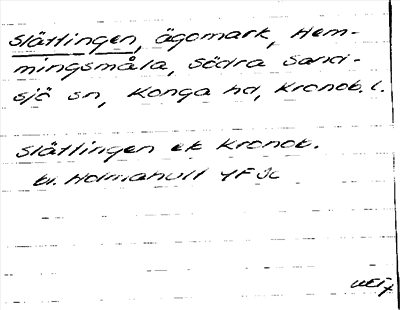 Slättingen, ägomark, Hem-
mingsmåla, Södra Sand-
sjö sn, Konga hd, Kronob. l.
Slättingen ek Kronob.
bl. Holmahult 4F 3c